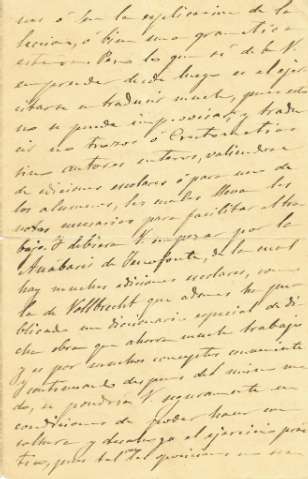 mas ó sea la esplicacion de la
leccion, ó bien una gramatica
Para lo que sí debe V.
emprender desde luego es el ejer
citarse en traducir mucho, pues esto
no se puede improvisar, y tradu
cir no trozos ó Crestomatias
sino autores enteros, valiendose
de ediciones escolares ó para uso de
los alumnos, las cuales llevan las
notas necesarias para facilitar el tra
bajo. Y debiera V. empezar por la
Anabasis de Jenofonte, de la cual
hay muchas ediciones escolares, como
la de Vollbrecht que ademas ha pu
blicado un diccionario especial de di
cha obra que ahorra mucho trabajo
y es por muchos conceptos conveniente
y continuando despues del mismo mo
do, se pondria V. seguramente en
condiciones de poder hacer con
soltura y desahogo el ejercicio prác
tico, pues tal vez oposiciones no sea